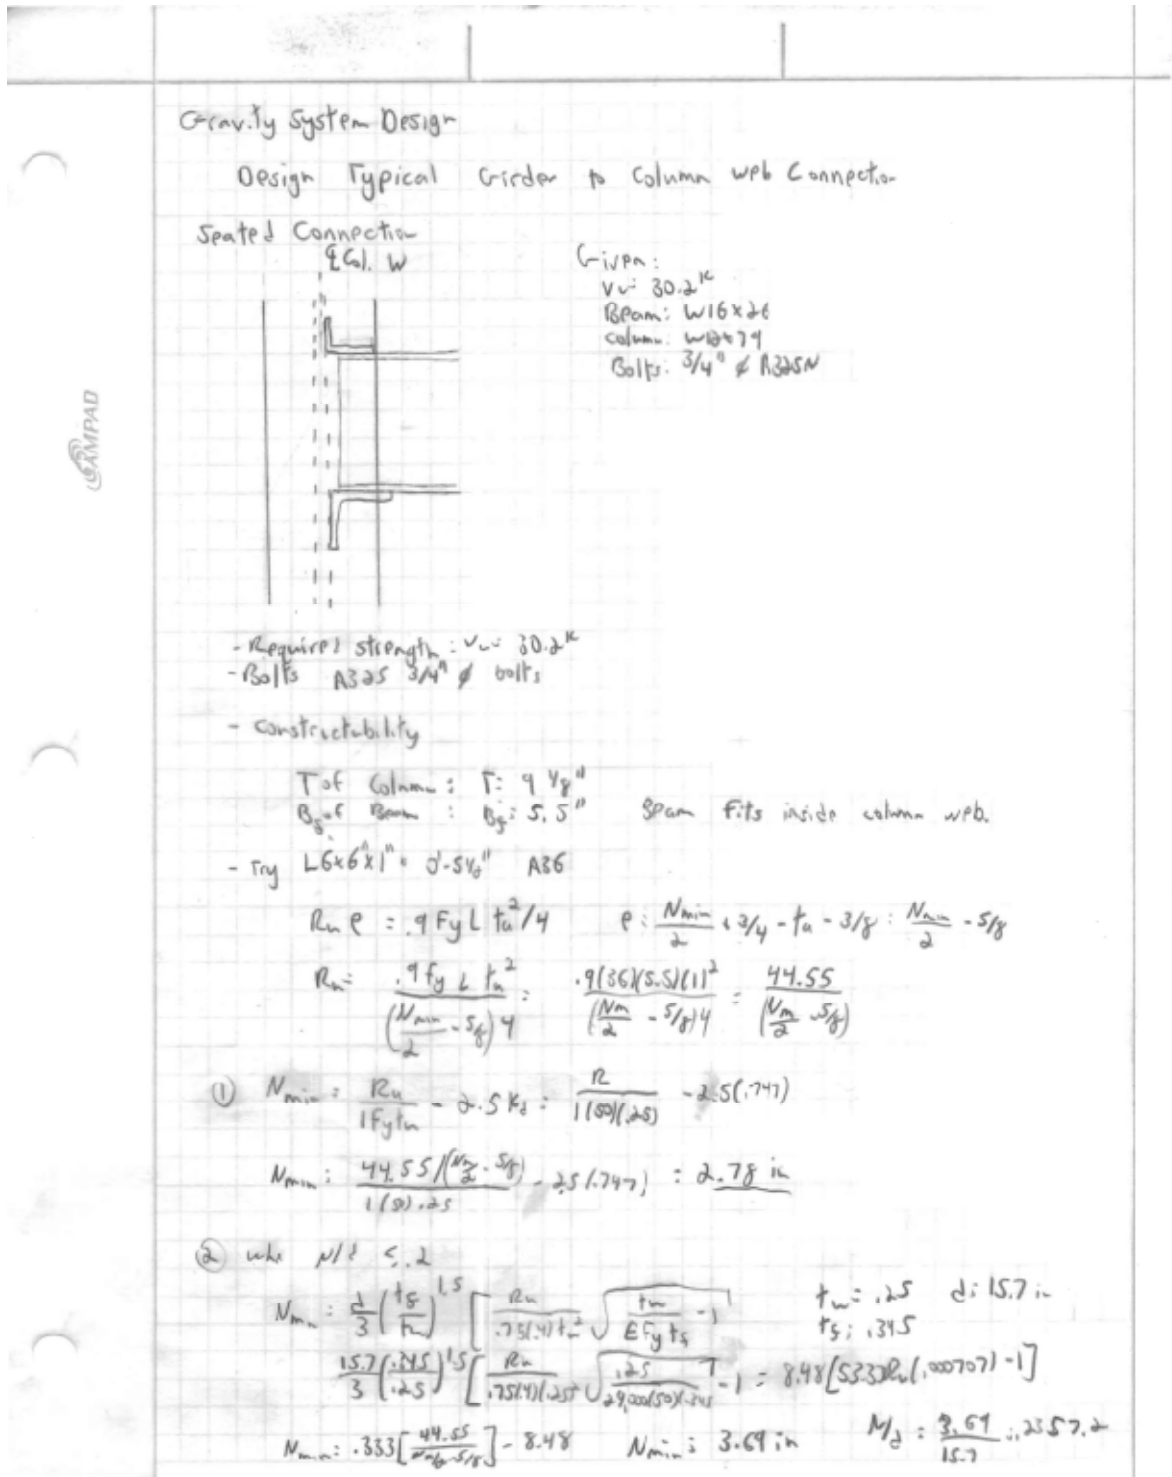 Gravity System Design
Design Typical Girder to Column web Connection
Seated Connection
℄ Col. W
Given:
Vu= 30.2ᴷ
Beam: W16x26
Column: W12x79
Bolts: 3/4" ϕ A325N
AMPAD
- Required strength: Vu= 30.2ᴷ
- Bolts A325 3/4" ϕ bolts
- Constructability
T of Column: T= 9 1/8"
Bf of Beam : Bf= 5.5" Beam fits inside column web.
- Try L6x6"x1" 0'-5½" A36
Ru e = .9 Fy L ta²/4 e= Nmin/2 + 3/4 - ta - 3/8 = Nmin/2 - 5/8
Ru= .9 Fy L ta² / (Nmin/2 - 5/8)4 = .9(36)(5.5)(1)² / (Nm/2 - 5/8)4 = 44.55 / (Nm/2 - 5/8)
① Nmin= Ru / 1Fytw - 2.5 Kd = R / 1(50)(.25) - 2.5(.747)
Nmin= 44.55/(Nm/2 - 5/8) / 1(50).25 - 2.5(.747) = 2.78 in
② whe N/d ≤ .2
Nmn= d/3 (tf/tw)^1.5 [ Ru / .75(.4)tw² √(tw / E Fy tf) - 1 ] tw= .25 d= 15.7 in
tf= .345
15.7/3 (.345/.25)^1.5 [ Ru / .75(.4)(.25)² √(.25 / 29,000(50)(.345) - 1 ] = 8.48[53.33Ru(.000707) - 1]
Nmin= .333[44.55 / Nm/2 - 5/8] - 8.48 Nmin= 3.69 in N/d = 3.69/15.7 = .235 > .2